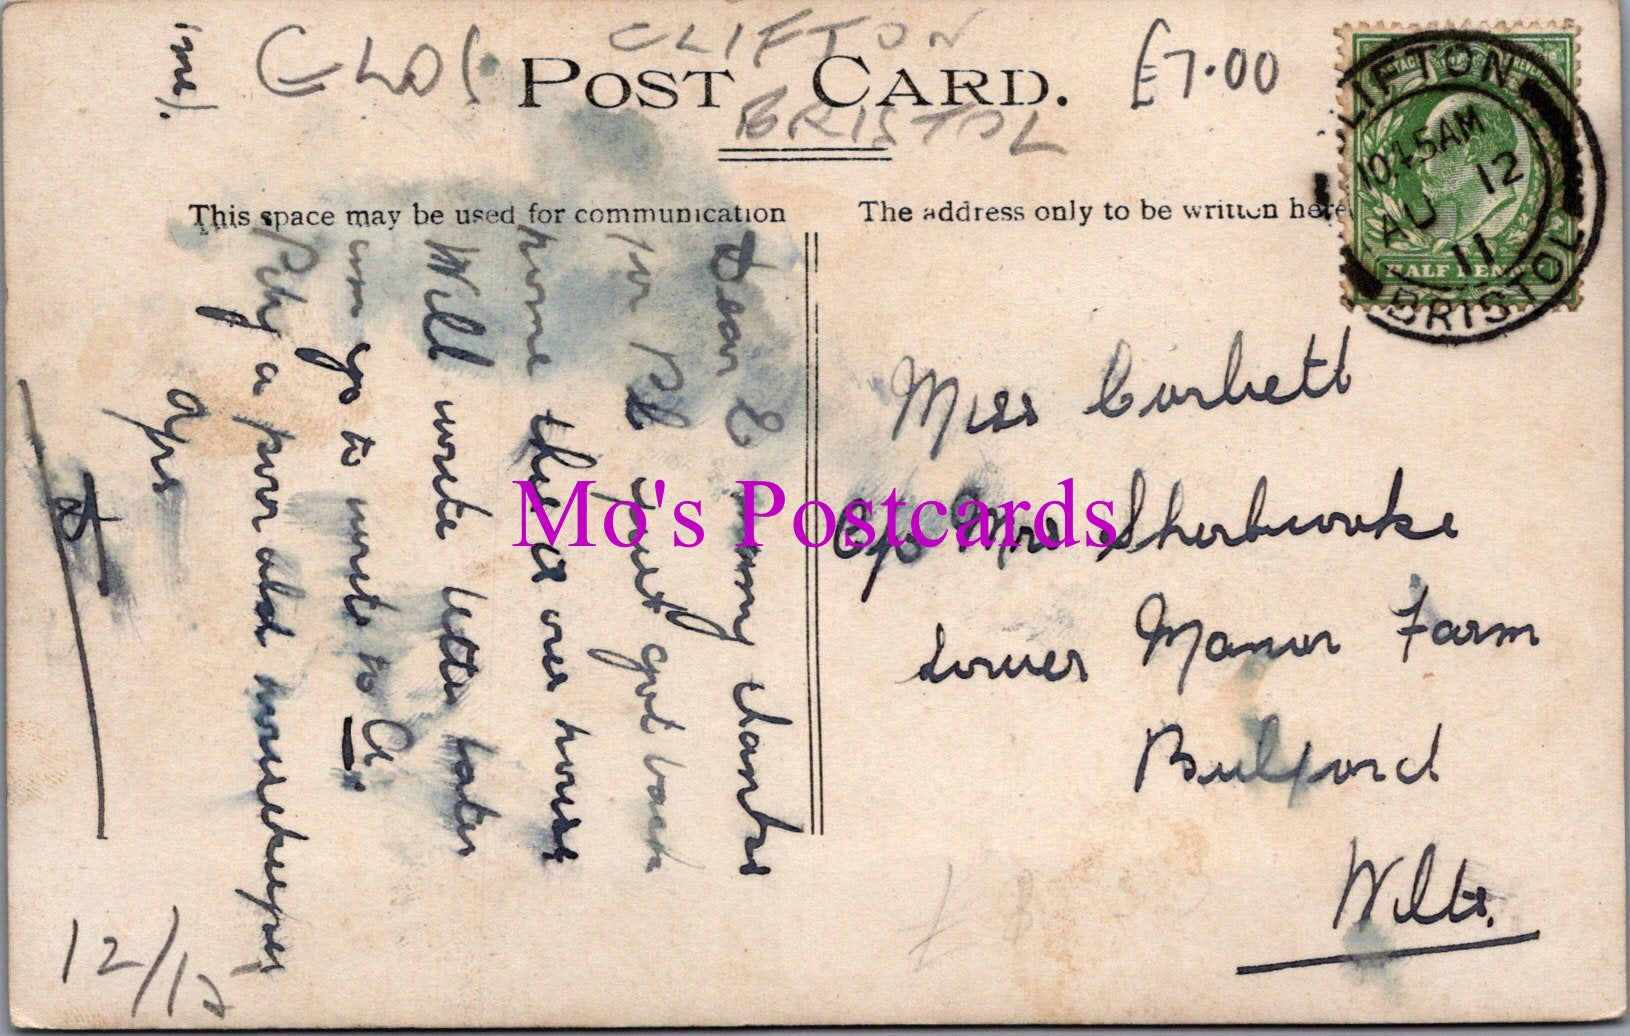 GLOS
CLIFTON
BRISTOL
£7.00
POST CARD.
This space may be used for communication
The address only to be written here
CLIFTON
10.45AM
AU 12
11
BRISTOL
HALF PENNY
Dear E many thanks
for P.C. got back
home
Will write letter later
go to write to G.
Pity a poor old housekeeper
me).
Miss Corbett
C/o Mrs Sherbrooke
Lower Manor Farm
Bulford
Wilts.
12/12
Mo's Postcards